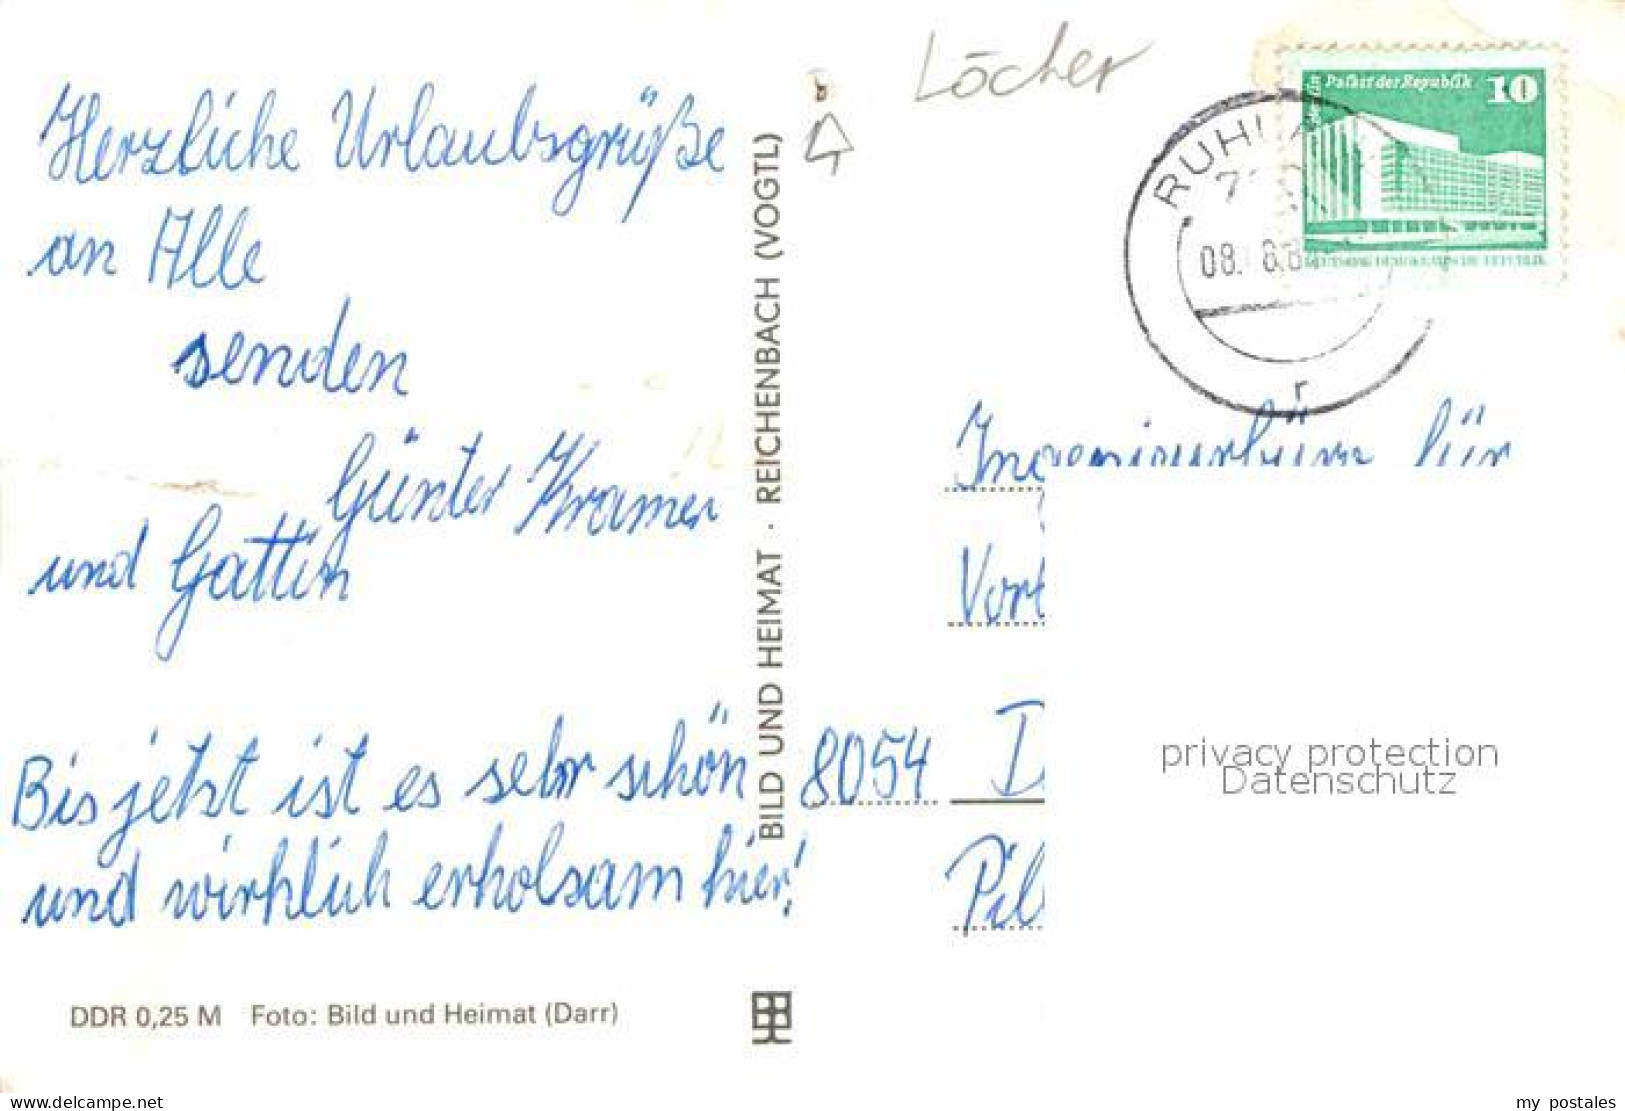 Löcher
Berlin Palast der Republik 10
DEUTSCHE DEMOKRATISCHE REPUBLIK
RUHLA
08.
r
Herzliche Urlaubsgrüße
an Alle
senden
Günter Kramer
und Gattin
Bis jetzt ist es sehr schön
und wirklich erholsam hier!
BILD UND HEIMAT · REICHENBACH (VOGTL)
Ingenieurbüro für
8054
DDR 0,25 M Foto: Bild und Heimat (Darr)
privacy protection
Datenschutz
www.delcampe.net
my_postales